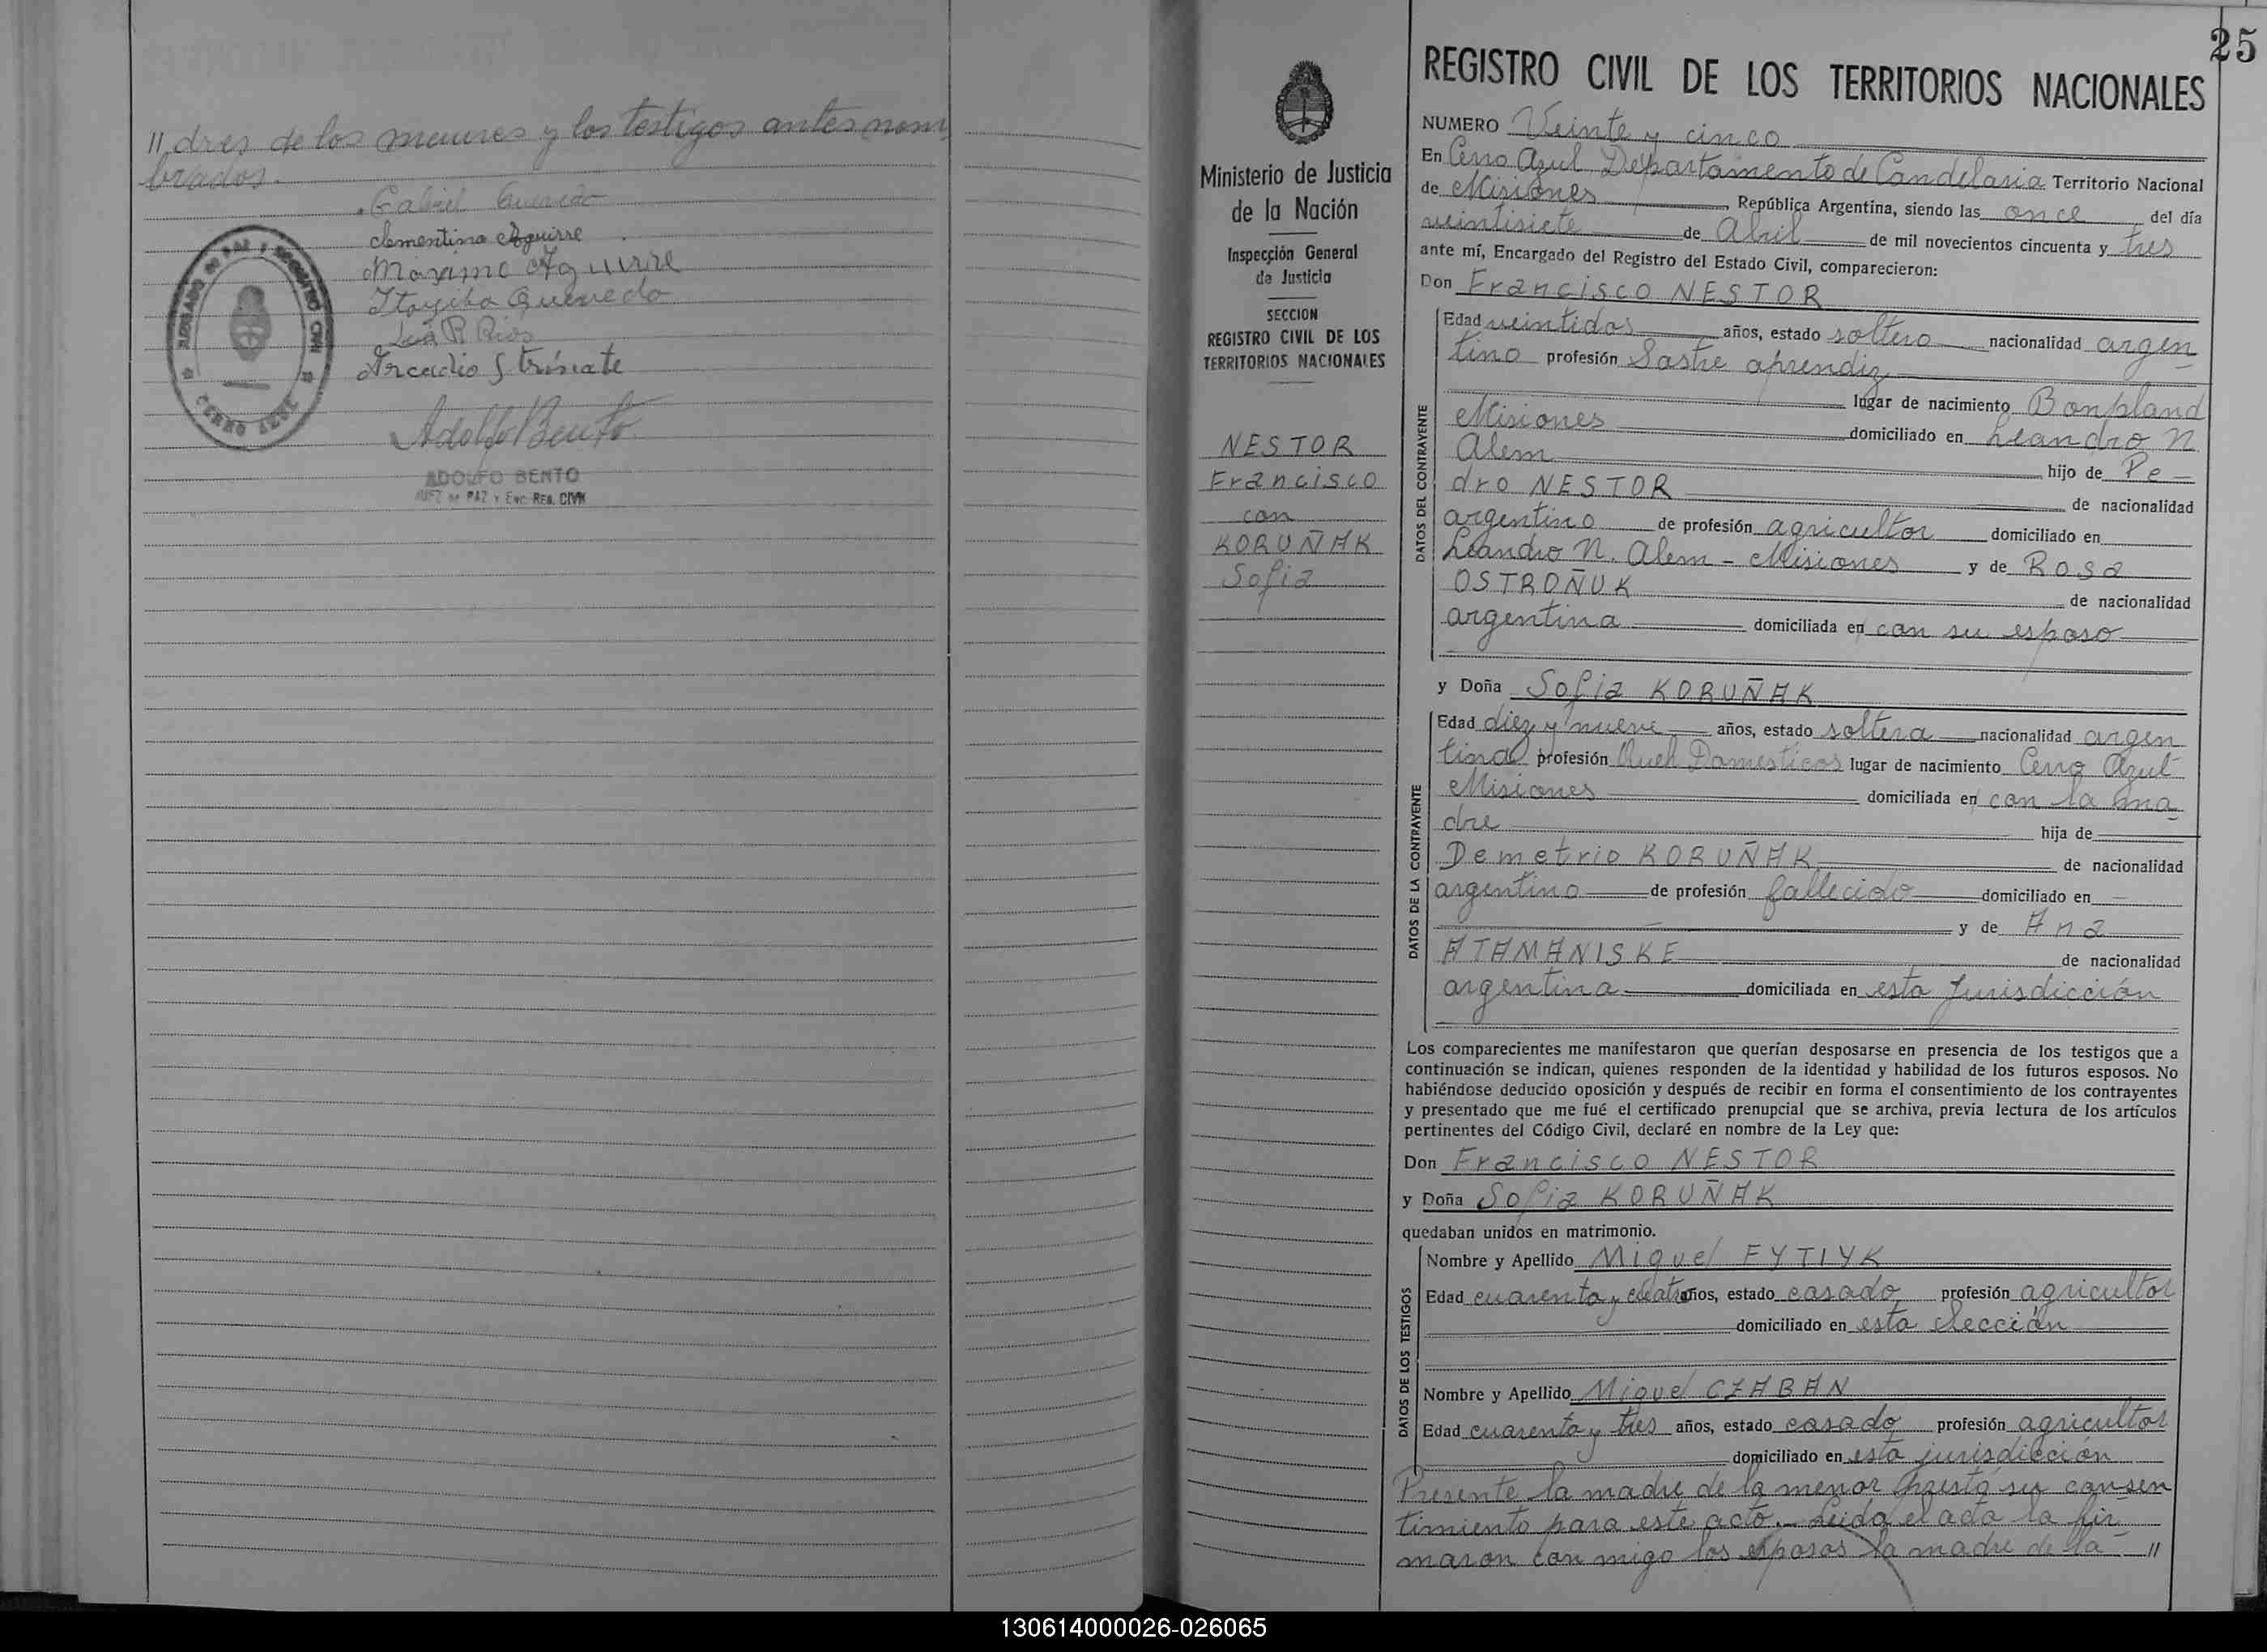 // dres de los menores y los testigos antes nom
brados.
Gabriel Quevedo
Clementina Aguirre
Maximo Aguirre
Itagiba Quevedo
Rios
Arcadio
JUZGADO DE PAZ Y REGISTRO CIVIL
CERRO AZUL
Adolfo Bento
ADOLFO BENTO
JUEZ DE PAZ Y ENC. REG. CIVIL
25
Ministerio de Justicia
de la Nación
Inspección General
de Justicia
SECCION
REGISTRO CIVIL DE LOS
TERRITORIOS NACIONALES
NESTOR
Francisco
con
KORUÑAK
Sofia
REGISTRO CIVIL DE LOS TERRITORIOS NACIONALES
NUMERO Veinte y cinco
En Cerro Azul Departamento de Candelaria Territorio Nacional
de Misiones República Argentina, siendo las once del día
veintisiete de Abril de mil novecientos cincuenta y tres
ante mí, Encargado del Registro del Estado Civil, comparecieron:
Don Francisco NESTOR
DATOS DEL CONTRAYENTE
Edad veintidos años, estado soltero nacionalidad argen
tino profesión Sastre aprendiz
lugar de nacimiento Bonpland
Misiones domiciliado en Leandro N.
Alem hijo de Pe-
dro NESTOR de nacionalidad
argentino de profesión agricultor domiciliado en
Leandro N. Alem - Misiones y de Rosa
OSTROÑUK de nacionalidad
argentina domiciliada en con su esposo
y Doña Sofia KORUÑAK
DATOS DE LA CONTRAYENTE
Edad diez y nueve años, estado soltera nacionalidad argen
tina profesión Queh Domesticos lugar de nacimiento Cerro Azul
Misiones domiciliada en con la ma-
dre hija de
Demetrio KORUÑAK de nacionalidad
argentino de profesión fallecido domiciliado en —
— y de Ana
ATAMANISKE de nacionalidad
argentina domiciliada en esta Jurisdicción
Los comparecientes me manifestaron que querían desposarse en presencia de los testigos que a
continuación se indican, quienes responden de la identidad y habilidad de los futuros esposos. No
habiéndose deducido oposición y después de recibir en forma el consentimiento de los contrayentes
y presentado que me fué el certificado prenupcial que se archiva, previa lectura de los artículos
pertinentes del Código Civil, declaré en nombre de la Ley que:
Don Francisco NESTOR
y Doña Sofia KORUÑAK
quedaban unidos en matrimonio.
DATOS DE LOS TESTIGOS
Nombre y Apellido Miguel FYTIYK
Edad cuarenta y cuatro años, estado casado profesión agricultor
domiciliado en esta Sección
Nombre y Apellido Miguel CZABAN
Edad cuarenta y tres años, estado casado profesión agricultor
domiciliado en esta jurisdicción
Presente la madre de la menor presta su consen
timiento para este acto.- Leida el acta la fir-
maron con migo los esposos la madre de la //
130614000026-026065